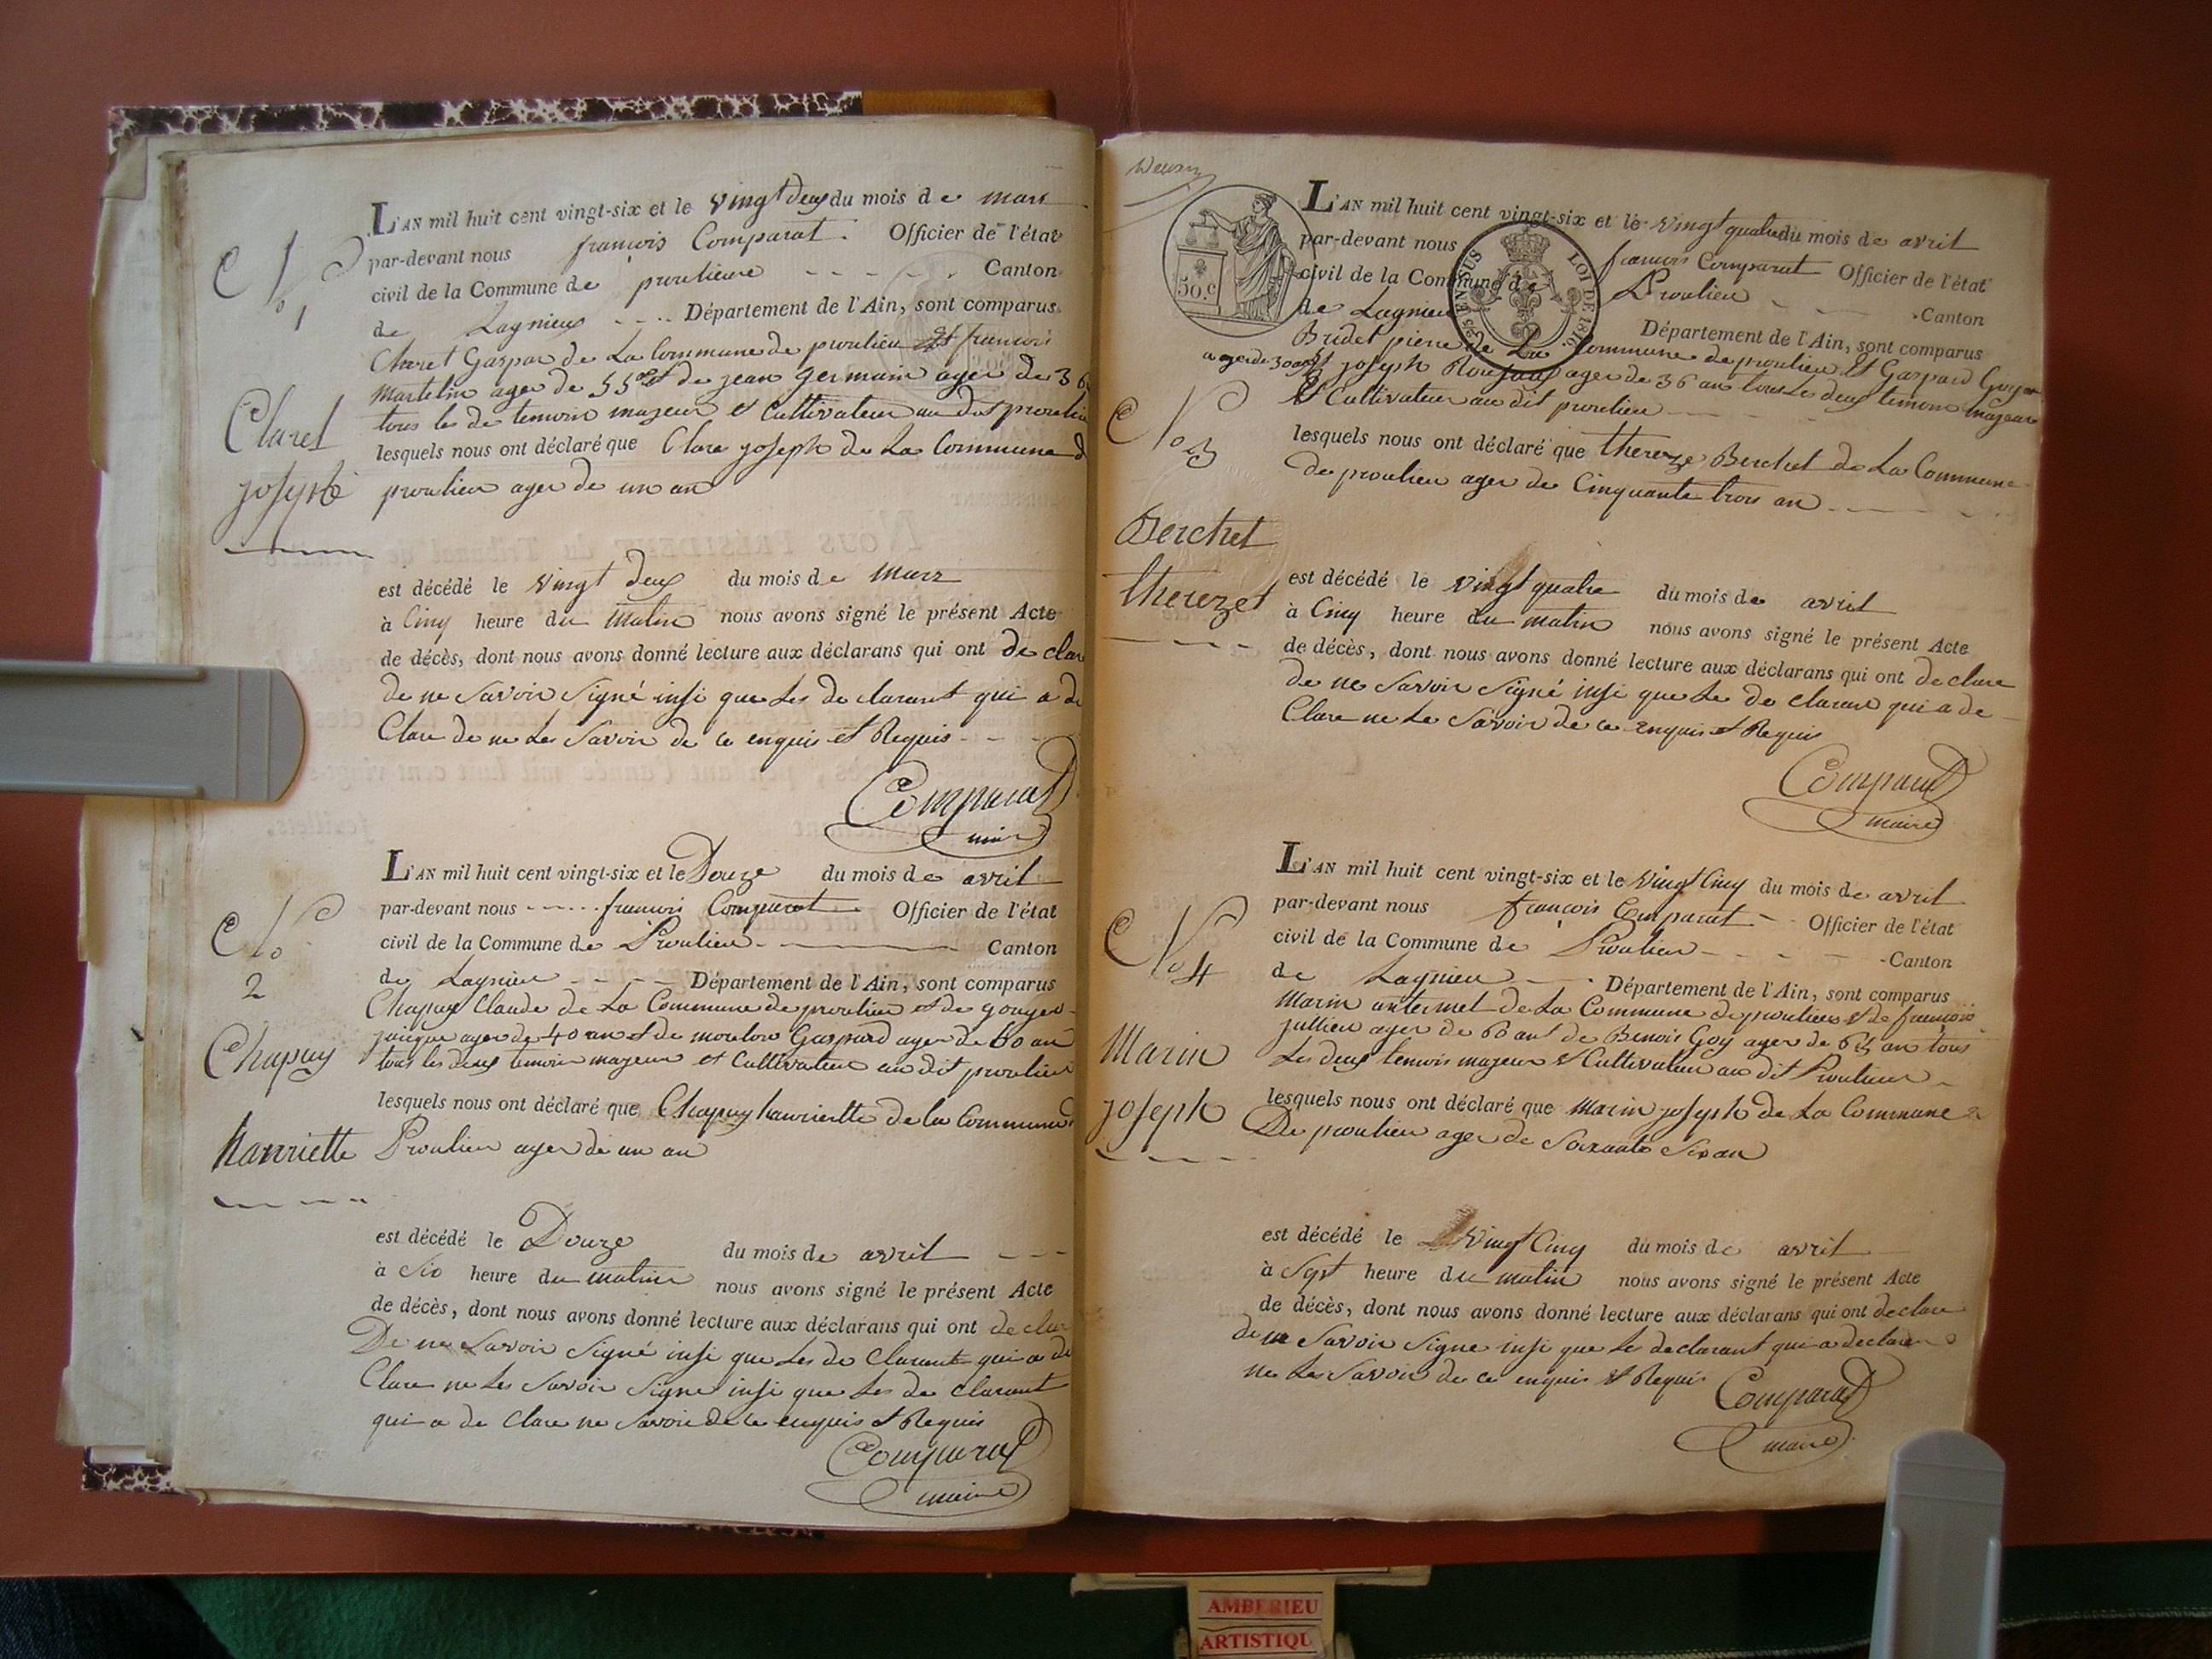 L'AN mil huit cent vingt-six et le vingt deux du mois de mars
par-devant nous françois Comparat. Officier de l'état
civil de la Commune de proulieux Canton
de Lagnieux Département de l'Ain, sont comparus
Claret Gaspar de La Commune de proulieu Et francois
Martelin ager de 55 ans et de jean germain ager de 36
tous les de temoin majeur et Cultivateur au dit proulieu
lesquels nous ont déclaré que Clare joseph de La Commune d
proulieu ager de un an
N° 1
Claret
joseph
est décédé le vingt deux du mois de Mars
à Cinq heure du Matin nous avons signé le présent Acte
de décès, dont nous avons donné lecture aux déclarans qui ont de clare
de ne Savoir Signé insi que Les de clarant qui a de
Clare de ne Les Savoir de ce enquis et Requis
Comparat
maire
L'AN mil huit cent vingt-six et le Douze du mois de avril
par-devant nous francois Comparat Officier de l'état
civil de la Commune de Proulieu Canton
de Lagnieu Département de l'Ain, sont comparus
Chapuy Claude de La Commune de proulieu et de
ager de 40 an et de moulon Gaspard ager de 60 an
tous les deux temoin majeur et Cultivateur au dit proulieu
lesquels nous ont déclaré que Chapuy hanriette de la Commune
Proulieu ager de un an
N° 2
Chapuy
hanriette
est décédé le Douze du mois de avril
à Six heure du matin nous avons signé le présent Acte
de décès, dont nous avons donné lecture aux déclarans qui ont de clare
De ne Savoir Signé insi que Les de Clarant qui a de
Clare ne Les Savoir Signe insi que Les de clarant
qui a de Clare ne Savoir de ce enquis et Requis
Comparat
maire
50.c
LOI DE 1816
L'AN mil huit cent vingt-six et le vingt quatre du mois de avril
par-devant nous francois Comparat Officier de l'état
civil de la Commune de Proulieu Canton
de Lagnieu Département de l'Ain, sont comparus
Bridet pierre de La Commune de proulieu Et Gaspard
ager de 30 ans Et joseph ager de 36 an tous Les deux temoin Majeur
Et Cultivateur au dit proulieu
lesquels nous ont déclaré que thereze Berchet de La Commune
de proulieu ager de Cinquante trois an
N° 3
Berchet
thereze
est décédé le vingt quatre du mois de avril
à Cinq heure du matin nous avons signé le présent Acte
de décès, dont nous avons donné lecture aux déclarans qui ont de clare
de ne Savoir Signé insi que Le de clarant qui a de
Clare ne Le Savoir de ce enquis et Requis
Comparat
maire
L'AN mil huit cent vingt-six et le vingt Cinq du mois de avril
par-devant nous françois Comparat Officier de l'état
civil de la Commune de Proulieu Canton
de Lagnieu Département de l'Ain, sont comparus
Marin antermet de La Commune de proulieu Et de francois
jullien ager de 60 an et de Benoit Goy ager de 65 an tous
Les deux temoin majeur Et Cultivateur au dit Proulieu
lesquels nous ont déclaré que Marin joseph de La Commune
De proulieu ager de Soixante Six an
N° 4
Marin
joseph
est décédé le vingt Cinq du mois de avril
à Sept heure du matin nous avons signé le présent Acte
de décès, dont nous avons donné lecture aux déclarans qui ont declare
de ne Savoir Signe insi que Les declarant qui a declare
ne Les Savoir de ce enquis Et Requis
Comparat
maire
AMBERIEU
ARTISTIQU